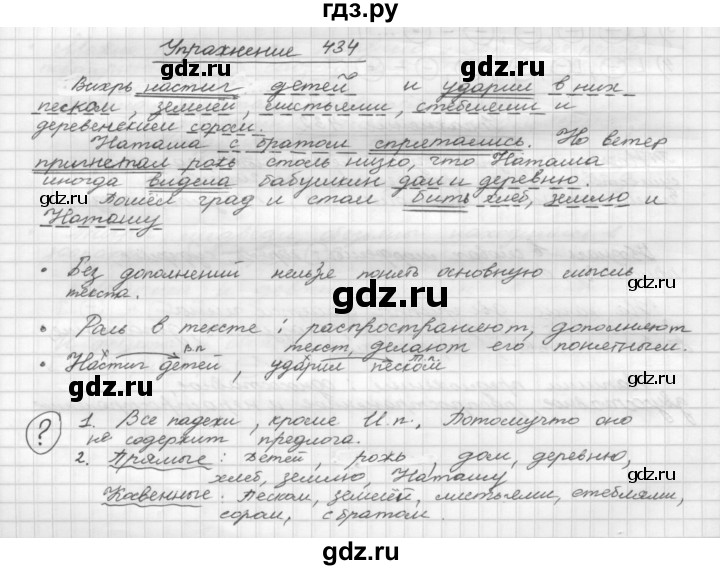 гдз.ру
Упражнение 434
gdz.ru
gdz.ru
Вихрь настиг детей и ударил в них
песком, землёй, листьями, стеблями и
деревенским сором.
Наташа с братом спрятались. Но ветер
пригнетал рожь столь низко, что Наташа
иногда видела бабушкин дом и деревню.
gdz.ru
gdz.ru
Пошёл град и стал бить хлеб, землю и
Наташу
• Без дополнений нельзя понять основную мысль
текста.
gdz.ru
• Роль в тексте: распространяют, дополняют
текст, делают его понятным.
• Настиг детей, ударил песком
х В.п. Т.п.
gdz.ru
gdz.ru
? 1. Все падежи, кроме И.п., Потомучто оно
не содержит предлога.
2. Прямые: Детей, рожь, дом, деревню,
хлеб, землю, Наташу
gdz.ru
gdz.ru
Косвенные: Песком, землёй, листьями, стеблями,
сором, с братом.
gdz.ru